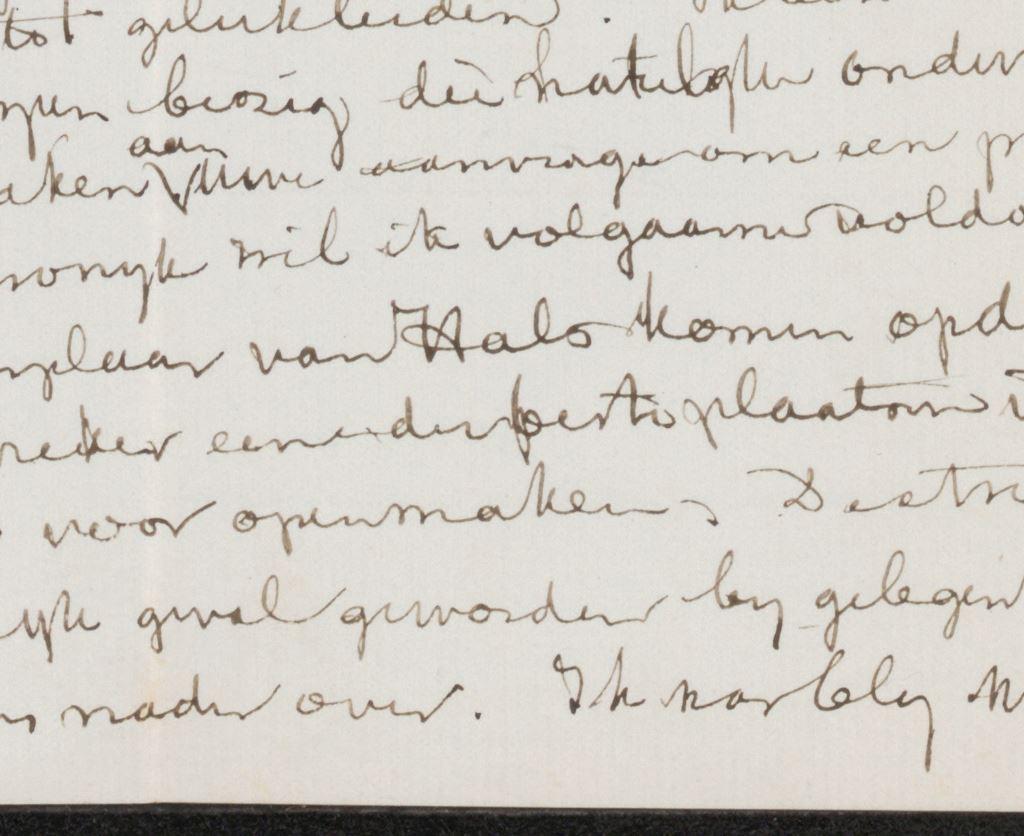 tot gelukkeiden. Ik
zyn bezig die hatelyke onder
aken aan Uwe aanvrage om een pr
onlyk wil ik volgaarne voldo
mplaar van Hals komen opd
reker eene der beste plaatsen
voor openmaken,
yk geval geworden by gelegen
nader over. Ik verbly